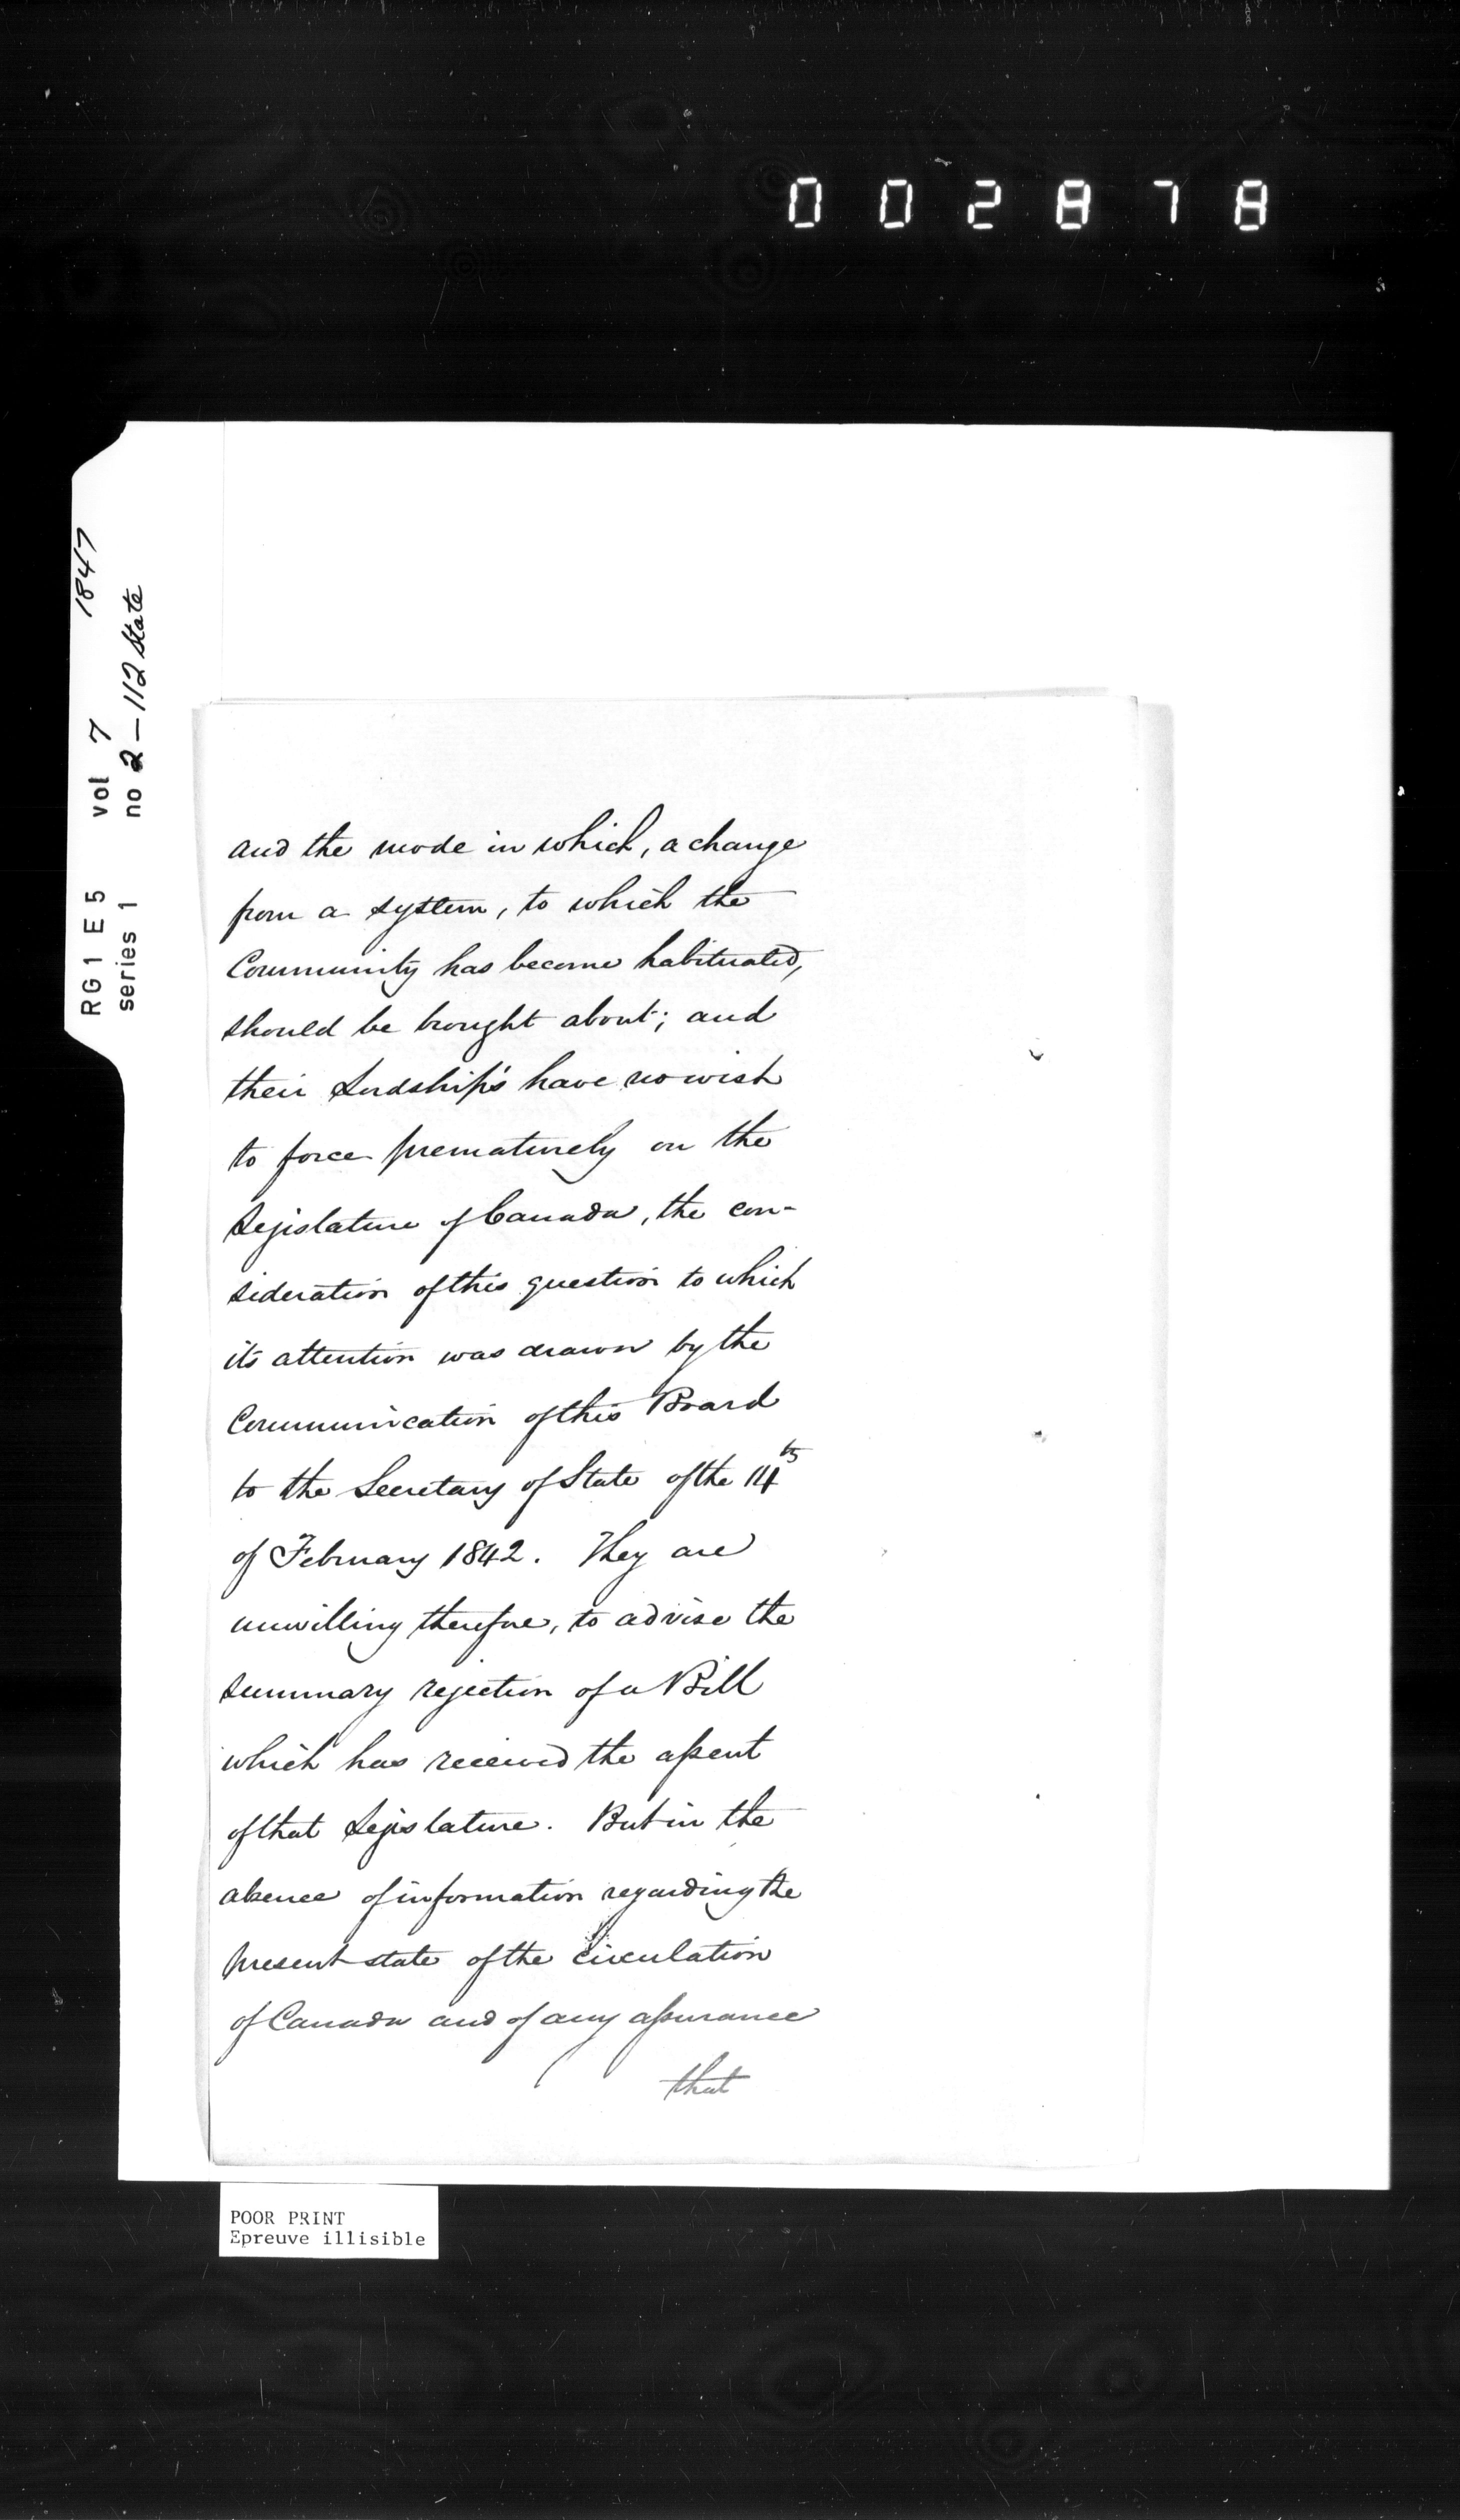 002878
RG1 E5 vol 7 1847
series 1 no 2-112 State
and the mode in which, a change
from a system, to which the
Community has become habituated,
should be brought about; and
their Lordship's have no wish
to force prematurely on the
Legislature of Canada, the con-
sideration of this question to which
its attention was drawn by the
Communication of this Board
to the Secretary of State of the 14th
of February 1842. They are
unwilling therefore, to advise the
summary rejection of a Bill
which has received the assent
of that Legislature. But in the
absence of information regarding the
present state of the circulation
of Canada and of any assurance
that
POOR PRINT
Epreuve illisible